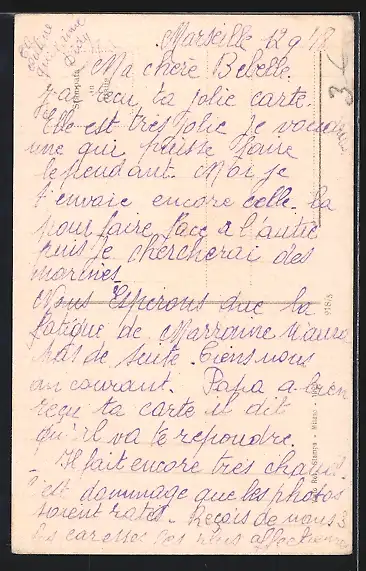 Marseille 12 9 18
Ma chère Bebelle.
J'ai reçu ta jolie carte.
Elle est très jolie je voudrais
une qui puisse faire
le pendant. Moi je
t'envoie encore celle-la
pour faire face a l'autre
puis je chercherai des
marines
Nous Esperons que la
fatigue de Marraine n'aura
pas de suite. Tiens nous
au courant. Papa a bien
reçu ta carte il dit
qu'il va te repondre.
Il fait encore très chaud
c'est dommage que les photos
soient ratés. Reçois de nous 3
les caresses les plus affectueuses
Stampata
in
Milano
918/3